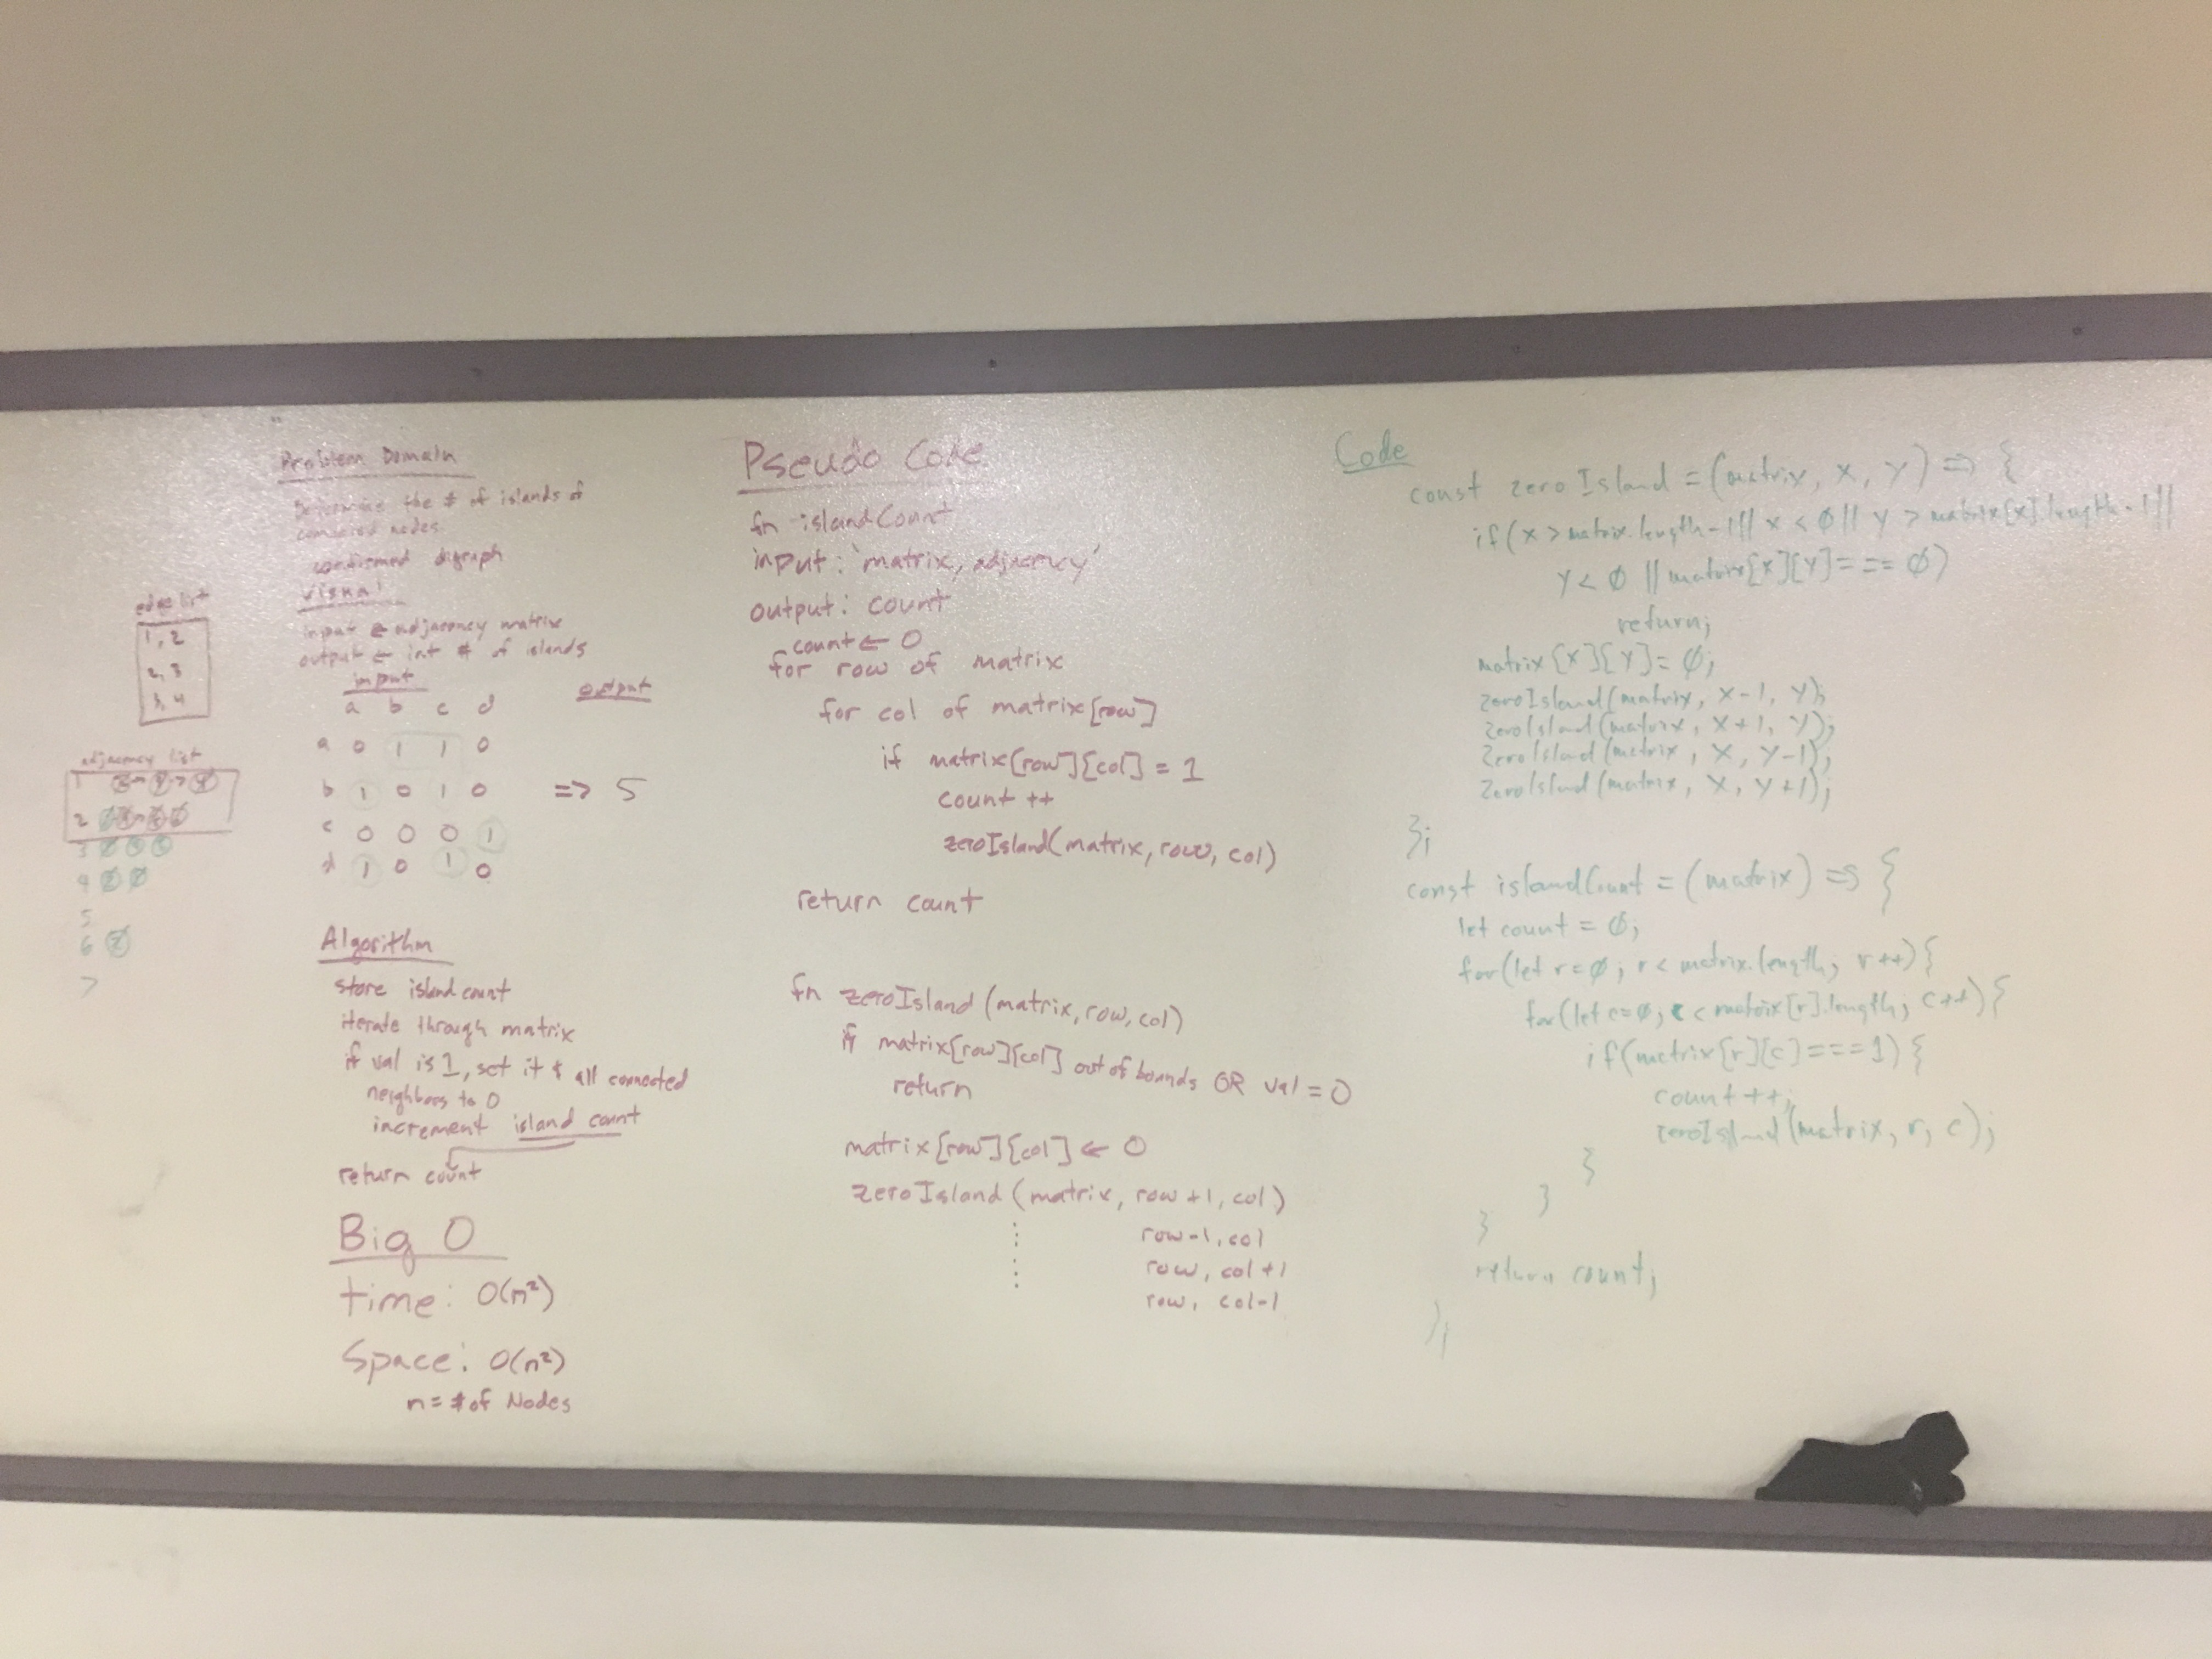 edge list
1, 2
2, 3
3, 4
adjacency list
1
2
3
4
5
6
7
Problem Domain
Determine the # of islands of
nodes
confirmed digraph
visual
input ← adjacency matrix
output ← int # of islands
input output
a b c d
a 0 1 1 0
b 1 0 1 0 => 5
c 0 0 0 1
d 1 0 1 0
Algorithm
store island count
iterate through matrix
if val is 1, set it & all connected
neighbors to 0
increment island count
return count
Big O
time: O(n²)
Space: O(n²)
n = # of Nodes
Pseudo Code
fn islandCount
input: 'matrix, adjacency'
output: count
count ← 0
for row of matrix
for col of matrix[row]
if matrix[row][col] = 1
count ++
zeroIsland(matrix, row, col)
return count
fn zeroIsland (matrix, row, col)
if matrix[row][col] out of bounds OR val = 0
return
matrix[row][col] ← 0
zeroIsland (matrix, row +1, col)
row-1, col
row, col+1
row, col-1
Code
const zeroIsland = (matrix, x, y) => {
if(x > matrix.length-1 || x < 0 || y > matrix[x].length-1 ||
y < 0 || matrix[x][y] === 0)
return;
matrix[x][y] = 0;
zeroIsland(matrix, x-1, y);
zeroIsland(matrix, x+1, y);
zeroIsland(matrix, x, y-1);
zeroIsland(matrix, x, y+1);
};
const islandCount = (matrix) => {
let count = 0;
for(let r=0; r < matrix.length; r++){
for(let c=0; c < matrix[r].length; c++){
if(matrix[r][c] === 1){
count ++;
zeroIsland(matrix, r, c);
}
}
}
return count;
};